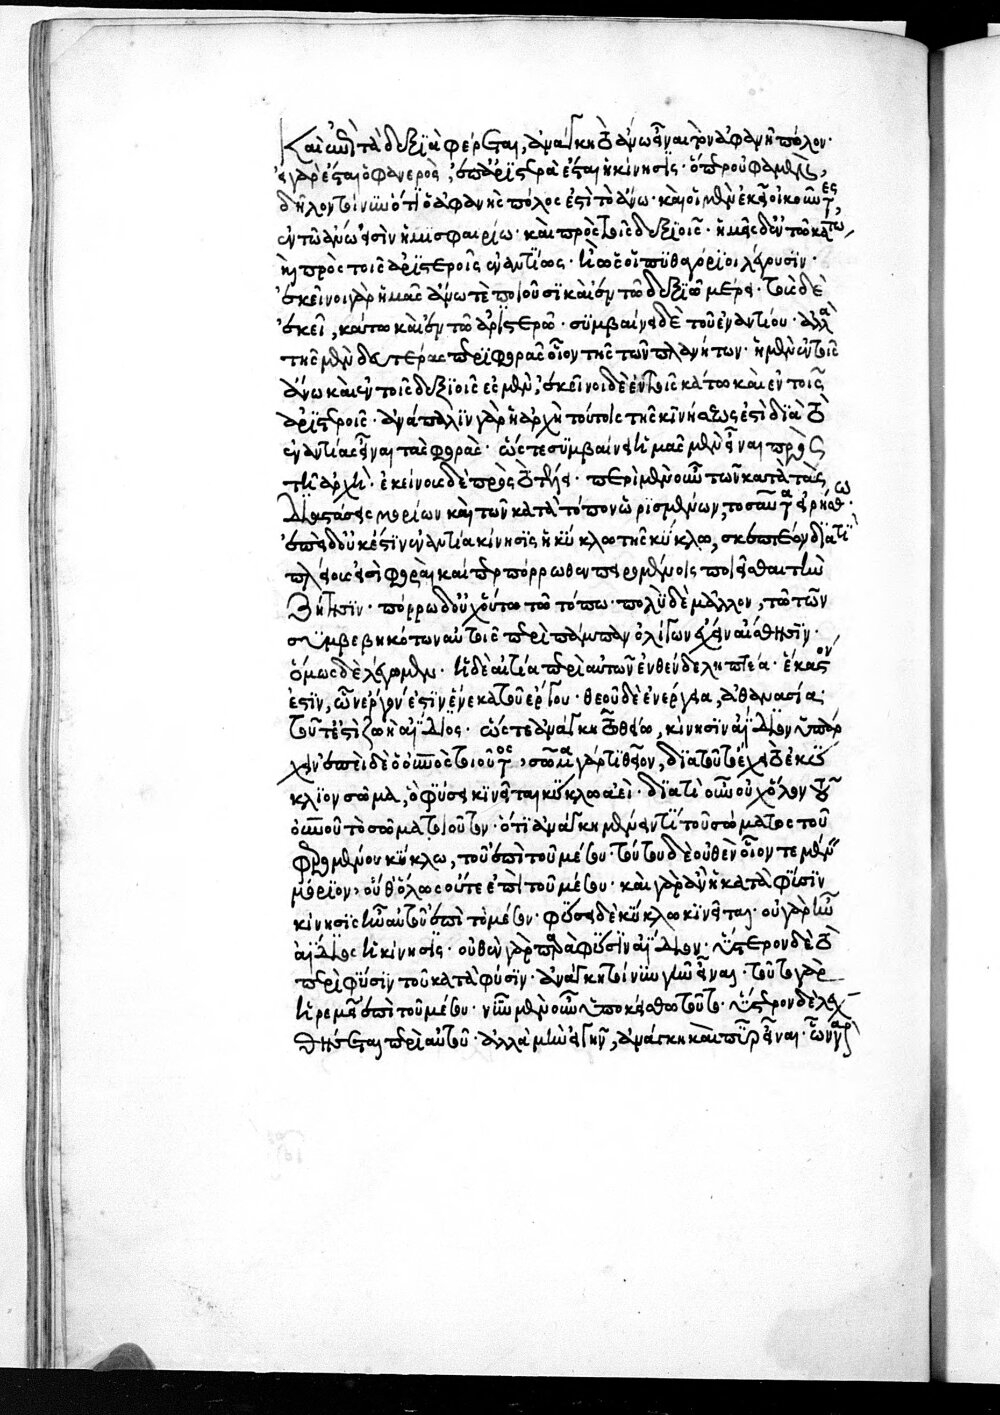 καὶ ἐπὶ τὰ δεξιὰ φέρεται, ἀνάγκη τὸ ἄνω εἶναι τὸν ἀφανῆ πόλον·
εἰ γὰρ ἔσται ὁ φανερὸς, ἐπ' ἀριστερὰ ἔσται ἡ κίνησις· ὅπερ οὔ φαμεν,
δῆλον τοίνυν ὅτι ὁ ἀφανὴς πόλος ἐστὶ τὸ ἄνω· καὶ οἱ μὲν ἐκεῖ οἰκοῦντες,
ἐν τῶ ἄνω εἰσὶν ἡμισφαιρίω· καὶ πρὸς τοῖς δεξιοῖς· ἡμεῖς δ' ἐν τῶ κάτω,
καὶ πρὸς τοῖς ἀριστεροῖς ἐναντίως· ἢ ὡς οἱ πυθαγόριοι λέγουσιν·
ἐκεῖνοι γὰρ ἡμᾶς ἄνω τε ποιοῦσι καὶ ἐν τῶ δεξιῶ μέρει· τοὺς δὲ
ἐκεῖ, κάτω καὶ ἐν τῶ ἀριστερῶ· συμβαίνει δὲ τοὐναντίον· ἀλλὰ
τῆς μὲν δευτέρας περιφορᾶς οἷον τῆς τῶν πλανήτων· ἡμεῖς ἐν τοῖς
ἄνω καὶ ἐν τοῖς δεξιοῖς ἐσμὲν, ἐκεῖνοι δὲ ἐν τοῖς κάτω καὶ ἐν τοῖς
ἀριστεροῖς· ἀνάπαλιν γὰρ ἡ ἀρχὴ τούτοις τῆς κινήσεώς ἐστι διὰ τὸ
ἐναντίας εἶναι τὰς φορὰς· ὥστε συμβαίνει ἡμᾶς μὲν εἶναι πρὸς
τῆ ἀρχῆ· ἐκείνους δὲ πρὸς τῶ τέλει· περὶ μὲν οὖν τῶν κατὰ τὰς
διαστάσεις μορίων καὶ τῶν κατὰ τόπον ὡρισμένων, τοσαῦτα εἰρήσθω·
ἐπεὶ δ' οὐκ ἔστιν ἐναντία κίνησις ἡ κύκλω τῆς κύκλω, σκεπτέον διὰ τί
πλείους εἰσὶ φοραὶ καίπερ πόρρωθεν πειρωμένοις ποιεῖσθαι τὴν
ζήτησιν· πόρρω δ' οὐχ οὕτω τῶ τόπω· πολὺ δὲ μᾶλλον, τῶ τῶν
συμβεβηκότων αὐτοῖς περὶ πάμπαν ὀλίγων ἔχειν αἴσθησιν·
ὅμως δὲ λέγωμεν· ἡ δὲ αἰτία περὶ αὐτῶν ἐνθένδε ληπτέα· ἕκαστόν
ἐστιν, ὧν ἔργον ἐστὶν ἕνεκα τοῦ ἔργου· θεοῦ δὲ ἐνέργεια, ἀθανασία·
τοῦτ' ἔστι ζωὴ ἀΐδιος· ὥστε ἀνάγκη τῶ θείω, κίνησιν ἀΐδιον ὑπάρ
χειν ἐπεὶ δὲ ὁ οὐρανὸς τοιοῦτος, σῶμα γάρ τι θεῖον, διὰ τοῦτο ἔχει τὸ ἐγκύ
κλιον σῶμα, ὃ φύσει κινεῖται κύκλω ἀεί· διὰ τί οὖν οὐχ ὅλον τὸ
οὐρανοῦ τὸ σῶμα τοιοῦτον· ὅτι ἀνάγκη μένειν τὶ τοῦ σώματος τοῦ
φερομένου κύκλω, τοῦ ἐπὶ τοῦ μέσου· τούτου δὲ οὐθὲν οἷόν τε μένειν
μόριον, οὔθ' ὅλως οὔτε ἐπὶ τοῦ μέσου· καὶ γὰρ ἂν ἡ κατὰ φύσιν
κίνησις ἦν αὐτοῦ ἐπὶ τὸ μέσον· φύσει δὲ κύκλω κινεῖται· οὐ γὰρ ἦν
ἀΐδιος ἡ κίνησις· οὐθὲν γὰρ παρὰ φύσιν ἀΐδιον· ὕστερον δὲ τὸ
παρὰ φύσιν τοῦ κατὰ φύσιν· ἀνάγκη τοίνυν γῆν εἶναι· τοῦτο γὰρ
ἠρεμεῖ ἐπὶ τοῦ μέσου· νῦν μὲν οὖν ὑποκείσθω τοῦτο· ὕστερον δὲ λεχ
θήσεται περὶ αὐτοῦ· ἀλλὰ μὴν εἰ γῆν, ἀνάγκη καὶ πῦρ εἶναι· τῶν γὰρ